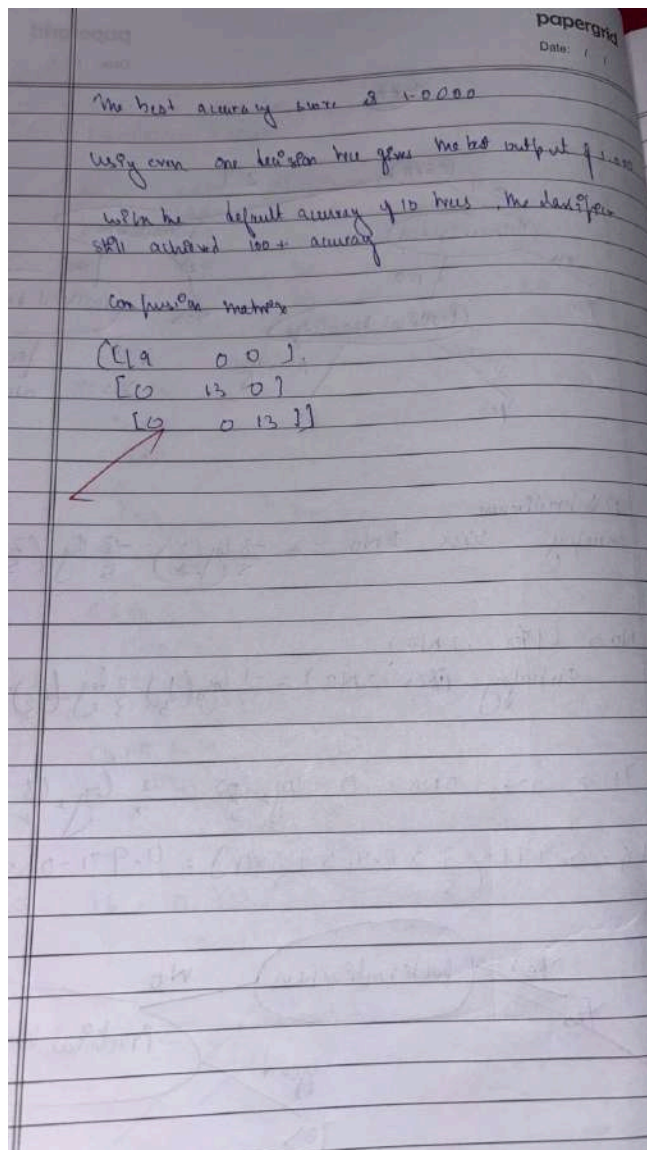 papergrid
Date: / /
The best accuracy score is 1.0000
Using even one decision tree gives the best output of 1.000
with the default accuracy of 10 trees, the classifier
still achieved 100% accuracy
Confusion matrix
([[19 0 0].
[0 13 0]
[0 0 13]]